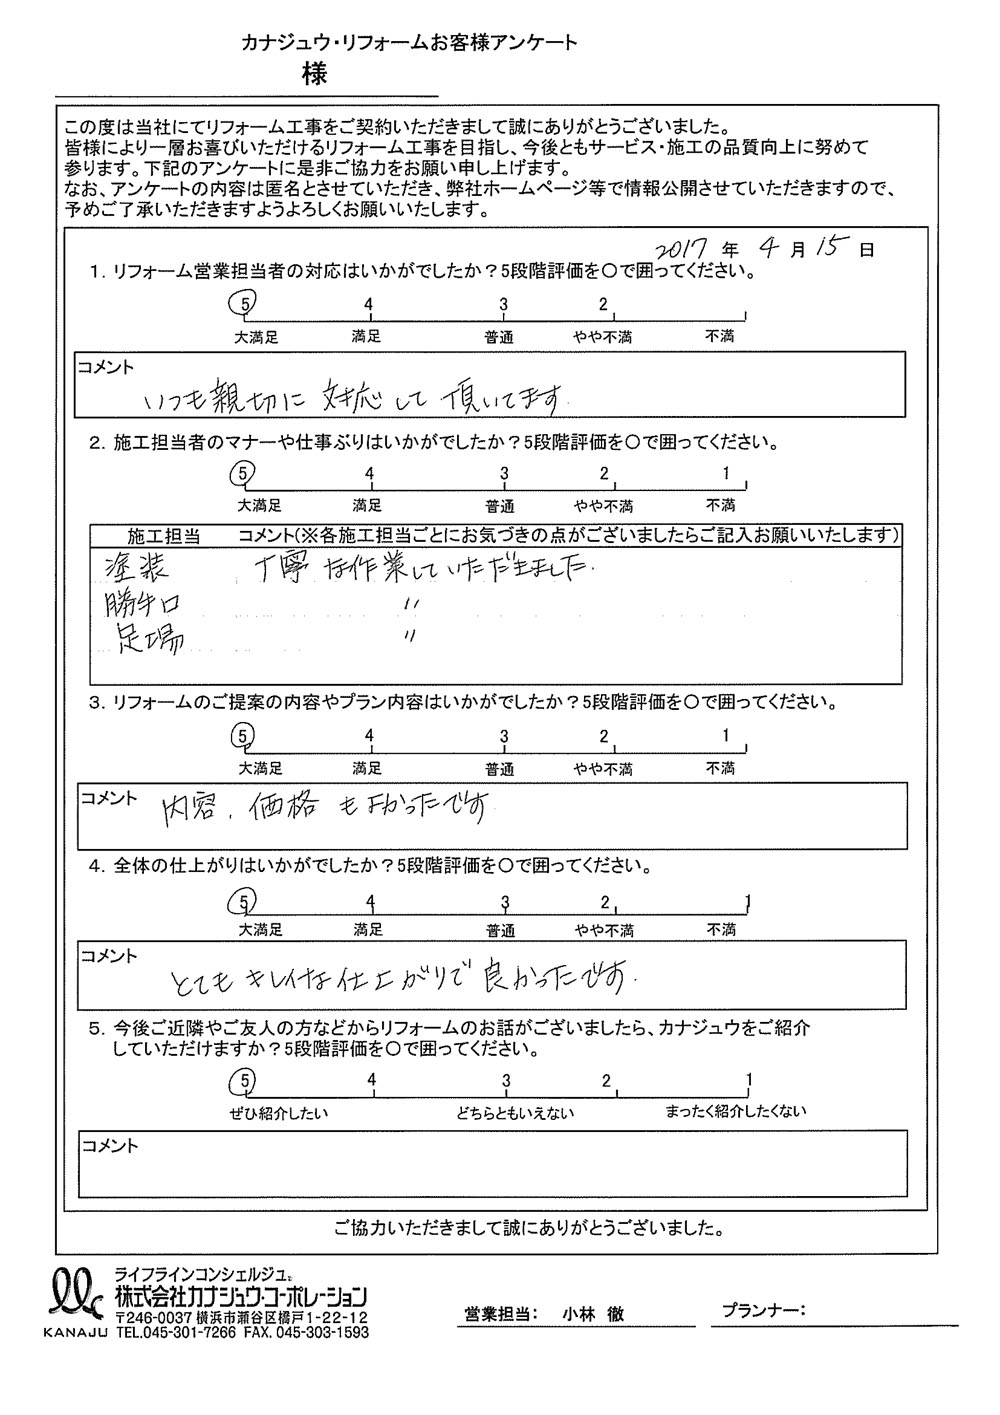 カナジュウ・リフォームお客様アンケート
様
この度は当社にてリフォーム工事をご契約いただきまして誠にありがとうございました。
皆様により一層お喜びいただけるリフォーム工事を目指し、今後ともサービス・施工の品質向上に努めて
参ります。下記のアンケートに是非ご協力をお願い申し上げます。
なお、アンケートの内容は匿名とさせていただき、弊社ホームページ等で情報公開させていただきますので、
予めご了承いただきますようよろしくお願いいたします。
2017 年 4 月 15 日
1. リフォーム営業担当者の対応はいかがでしたか？5段階評価を〇で囲ってください。
5 4 3 2
大満足 満足 普通 やや不満 不満
コメント
いつも親切に対応して頂いてます.
2. 施工担当者のマナーや仕事ぶりはいかがでしたか？5段階評価を〇で囲ってください。
5 4 3 2 1
大満足 満足 普通 やや不満 不満
施工担当 コメント(※各施工担当ごとにお気づきの点がございましたらご記入お願いいたします)
塗装 丁寧な作業していただきました.
勝手口 〃
足場 〃
3. リフォームのご提案の内容やプラン内容はいかがでしたか？5段階評価を〇で囲ってください。
5 4 3 2 1
大満足 満足 普通 やや不満 不満
コメント
内容、価格もよかったです
4. 全体の仕上がりはいかがでしたか？5段階評価を〇で囲ってください。
5 4 3 2 1
大満足 満足 普通 やや不満 不満
コメント
とてもキレイな仕上がりで良かったです.
5. 今後ご近隣やご友人の方などからリフォームのお話がございましたら、カナジュウをご紹介
していただけますか？5段階評価を〇で囲ってください。
5 4 3 2 1
ぜひ紹介したい どちらともいえない まったく紹介したくない
コメント
ご協力いただきまして誠にありがとうございました。
ライフラインコンシェルジュ
株式会社カナジュウ・コーポレーション
〒246-0037 横浜市瀬谷区橋戸1-22-12
KANAJU TEL.045-301-7266 FAX. 045-303-1593
営業担当： 小林 徹
プランナー：